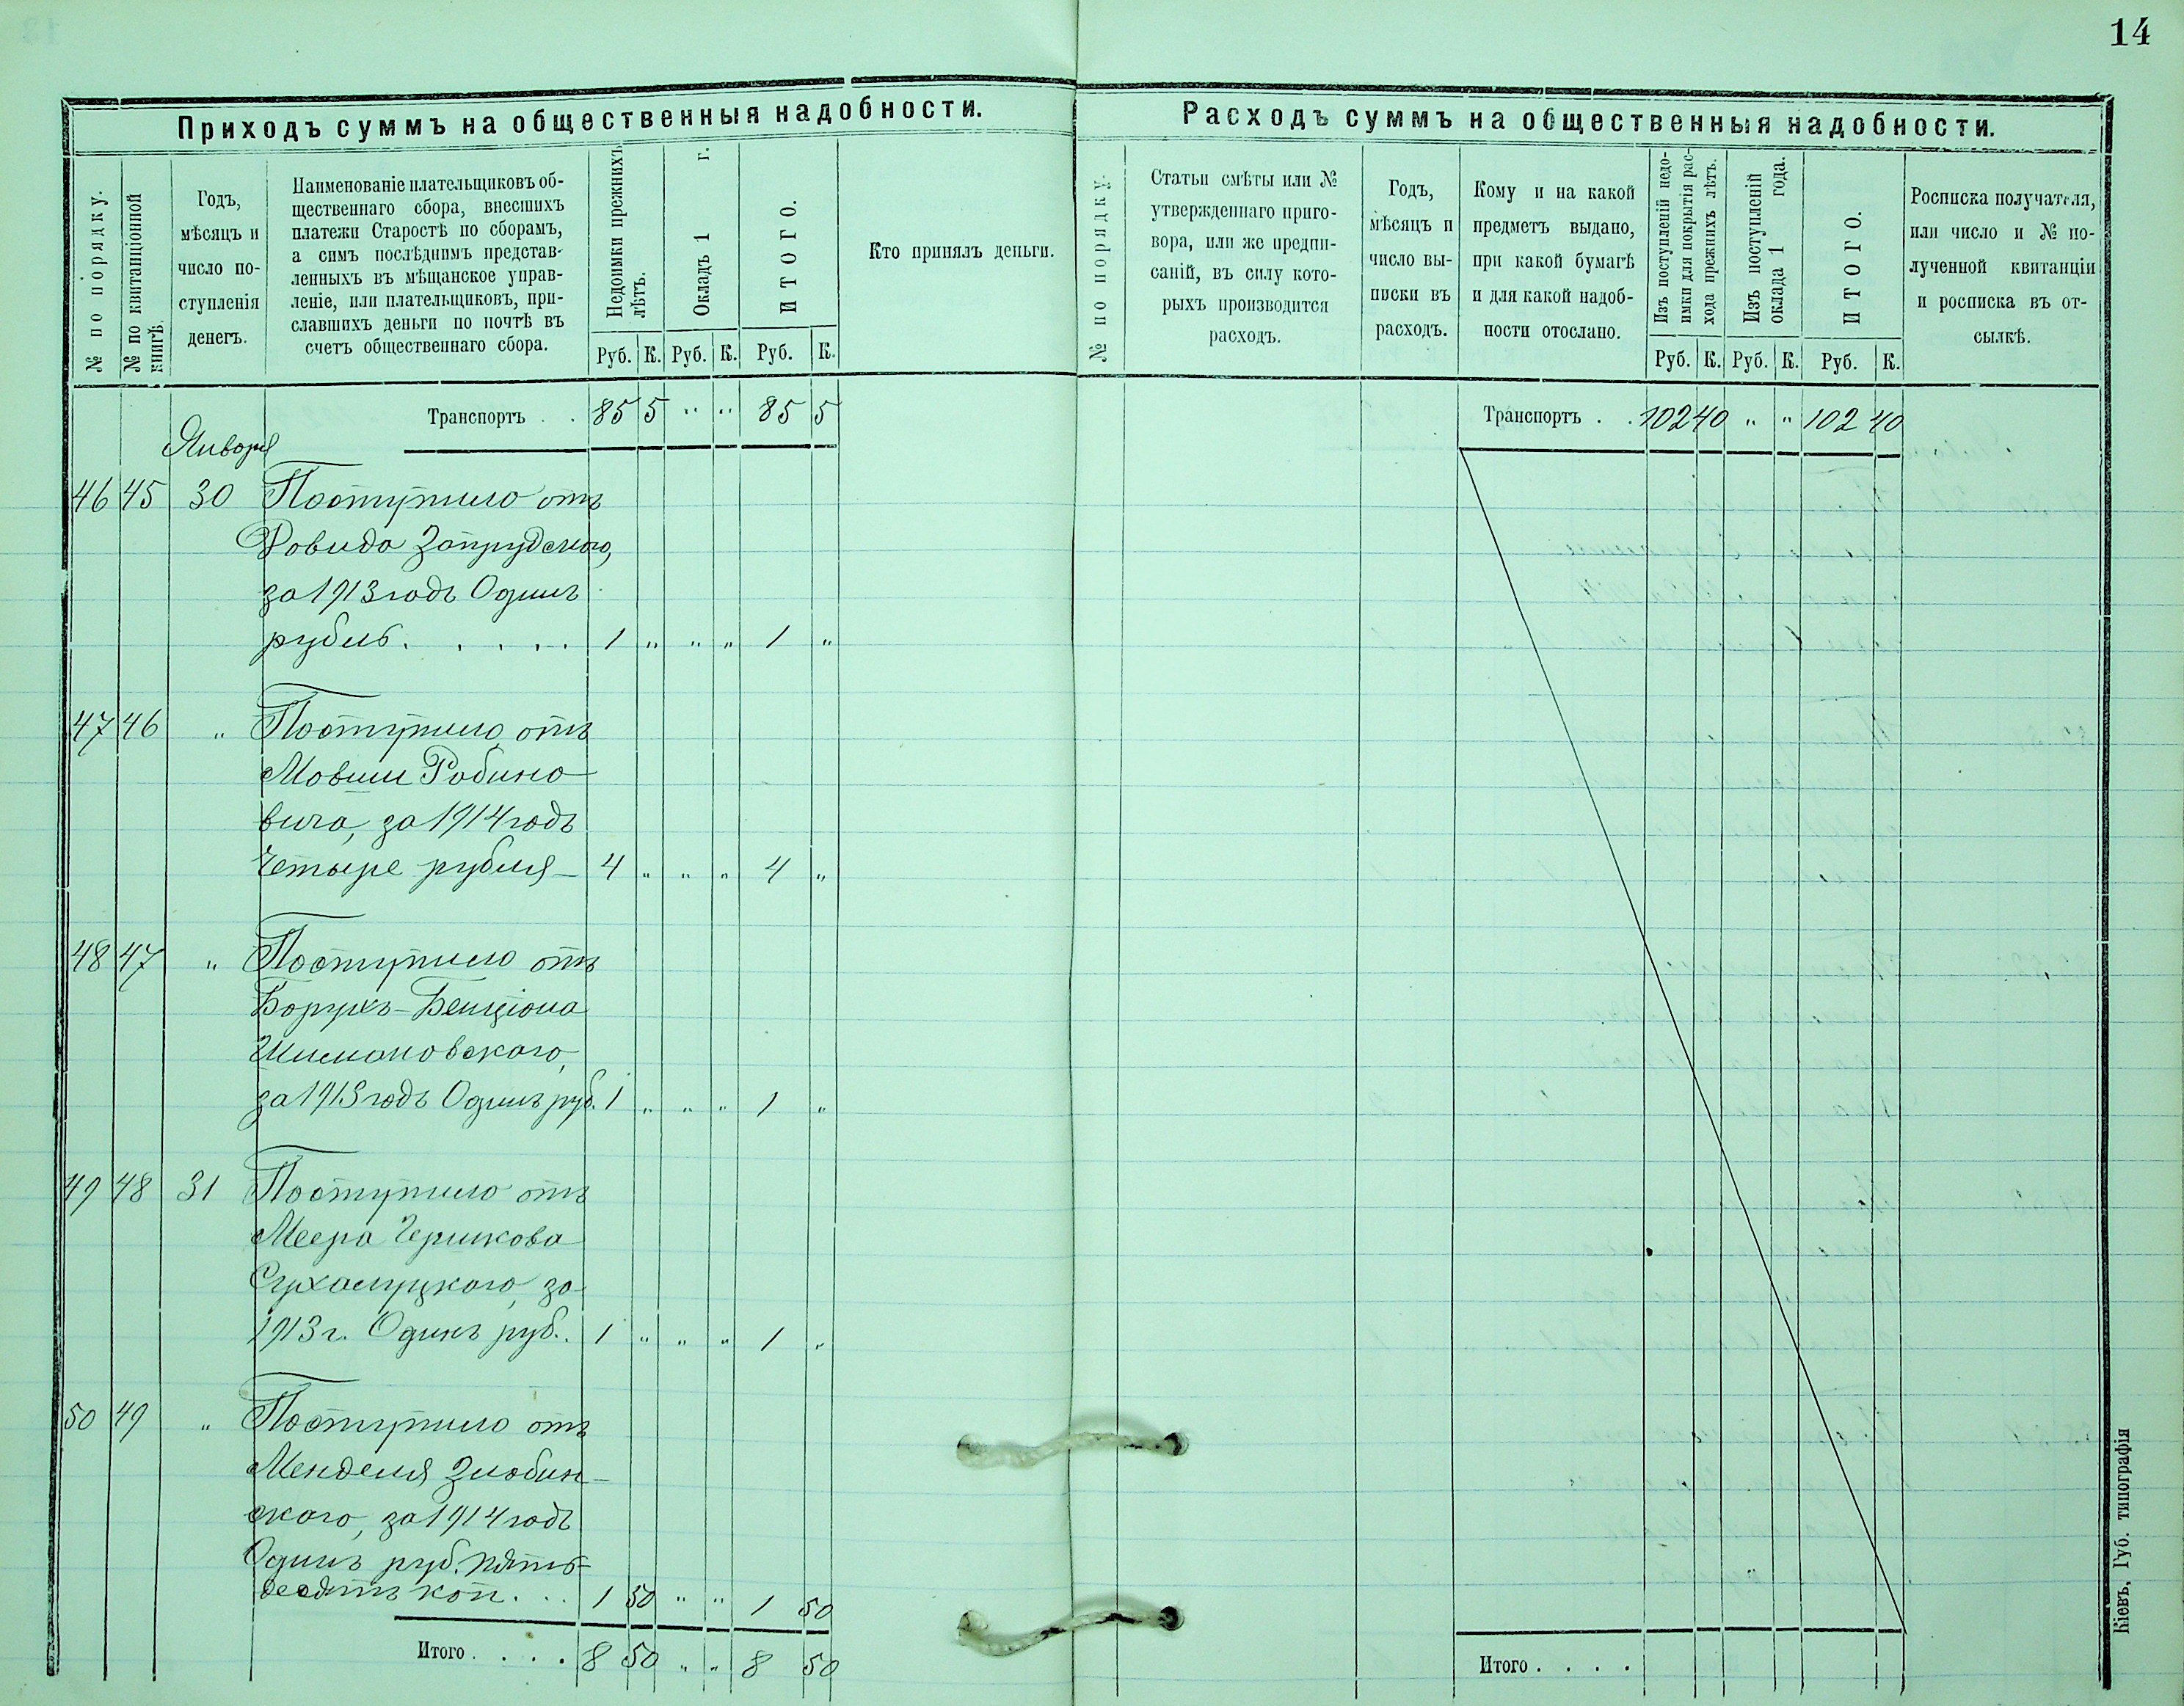 14
Приходъ суммъ на общественныя надобности.
№ по порядку.
№ по квитанціонной
книгѣ.
Годъ,
мѣсяцъ и
число по-
ступленія
денегъ.
Наименованіе плательщиковъ об-
щественнаго сбора, внесшихъ
платежи Старостѣ по сборамъ,
а симъ послѣднимъ представ-
ленныхъ въ мѣщанское управ-
леніе, или плательщиковъ, при-
славшихъ деньги по почтѣ въ
счетъ общественнаго сбора.
Недоимки прежнихъ
лѣтъ.
Окладъ 1 г.
ИТОГО.
Руб. К. Руб. К. Руб. К.
Кто принялъ деньги.
Транспортъ . . 85 5 " " 85 5
Января
46 45 30 Поступило отъ
Довида Запрудского,
за 1913 годъ Одинъ
рубль. . . . . . 1 " " " 1 "
47 46 " Поступило отъ
Мовши Рабино-
вича, за 1914 годъ
Четыре рубля - 4 " " " 4 "
48 47 " Поступило отъ
Борухъ-Бенціона
за 1913 годъ Одинъ руб. 1 " " " 1 "
49 48 31 Поступило отъ
Меера Герикова
Сухалуцкого, за
1913 г. Одинъ руб. . 1 " " " 1 "
50 49 " Поступило отъ
Менделя Злобин-
ского, за 1914 годъ
Одинъ руб. пять-
десятъ коп. . . 1 50 " " 1 50
Итого . . . . 8 50 " " 8 50
Расходъ суммъ на общественныя надобности.
№ по порядку.
Статьи смѣты или №
утвержденнаго приго-
вора, или же предпи-
саній, въ силу кото-
рыхъ производится
расходъ.
Годъ,
мѣсяцъ и
число вы-
писки въ
расходъ.
Кому и на какой
предметъ выдано,
при какой бумагѣ
и для какой надоб-
ности отослано.
Изъ поступленій недо-
имки для покрытія рас-
хода прежнихъ лѣтъ.
Изъ поступленій
оклада 1 года.
ИТОГО.
Руб. К. Руб. К. Руб. К.
Росписка получателя,
или число и № по-
лученной квитанціи
и росписка въ от-
сылкѣ.
Транспортъ . . 102 40 " " 102 40
Итого . . . .
Кіевъ, Губ. типографія